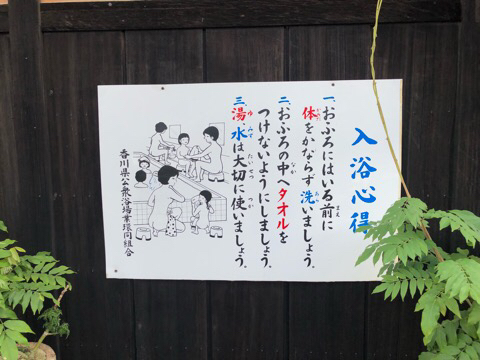 入浴心得
一、おふろにはいる前に
体をかならず洗いましょう。
二、おふろの中へタオルを
つけないようにしましょう。
三、湯、水は大切に使いましょう。
香川県公衆浴場業環同組合